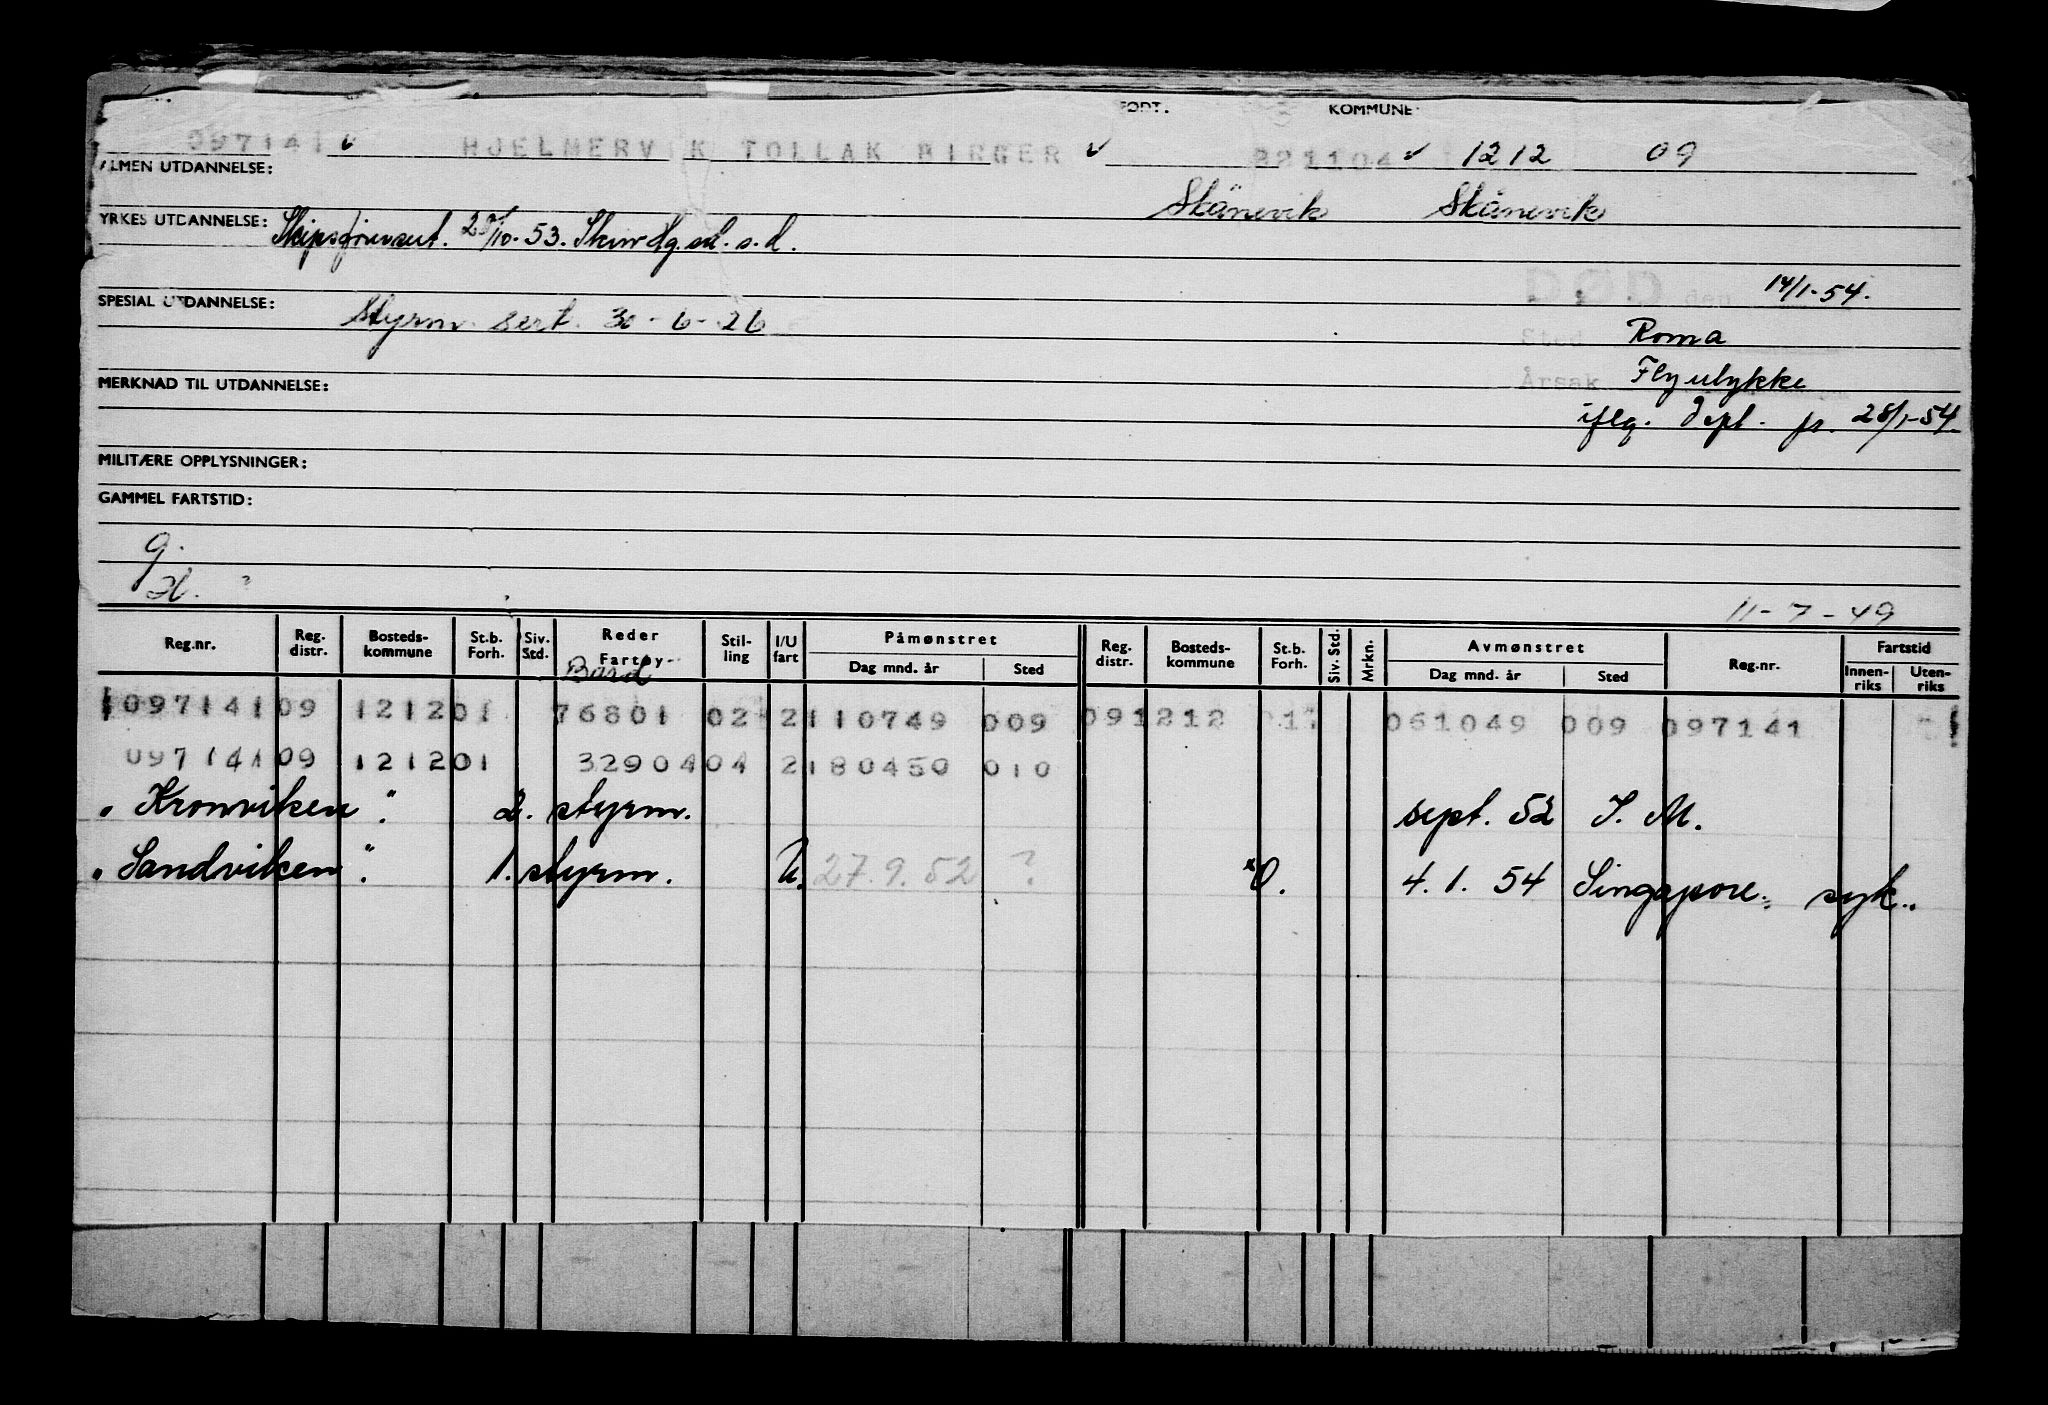 FØDT. KOMMUNE
097141 HJELMERVIK TOLLAK BIRGER 221104 1212 09
ALMEN UTDANNELSE:
Skånevik Skånevik
YRKES UTDANNELSE: Skipsførersert. 10.53. s.d.
DØD den 14/1-54.
SPESIAL UTDANNELSE: Styrm. sert. 30-6-26
Sted Roma
MERKNAD TIL UTDANNELSE: Årsak Flyulykke
iflg. Dept. 28/1-54.
MILITÆRE OPPLYSNINGER:
GAMMEL FARTSTID:
g.
11-7-49
Reg.nr. Reg. distr. Bosteds-kommune St.b. Forh. Siv. Std. Reder Fartøy Stil-ling I/U fart Påmønstret Dag mnd. år Sted Reg. distr. Bosteds-kommune St.b. Forh. Siv. Std. Mrkn. Avmønstret Dag mnd. år Sted Reg.nr. Fartstid Innen-riks Uten-riks
Bard
097141 09 1212 01 76801 02 2 110749 009 09 1212 01 061049 009 097141
097141 09 1212 01 32904 04 2 180450 010
"Kronviken". 2. styrm. sept. 52 I. M.
"Sandviken". 1. styrm. U. 27.9.52 ? O. 4.1.54 Singapore. syk.